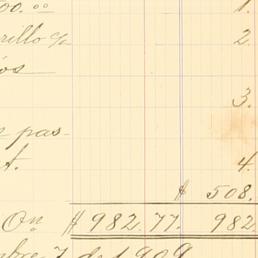 00. 00 1.
rillo c/c 2.
os
3.
pas-
t. 4.
$ 508.
On $ 982.77. 982.
mbre 7 de 1909